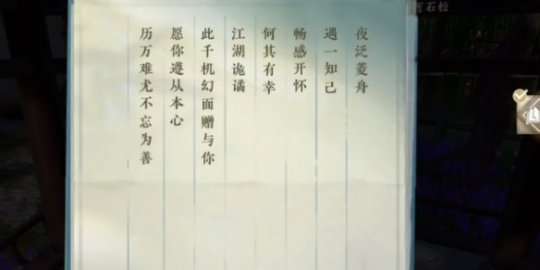 夜泛菱舟
遇一知己
畅感开怀
何其有幸
江湖诡谲
此千机幻面赠与你
愿你遵从本心
历万难尤不忘为善